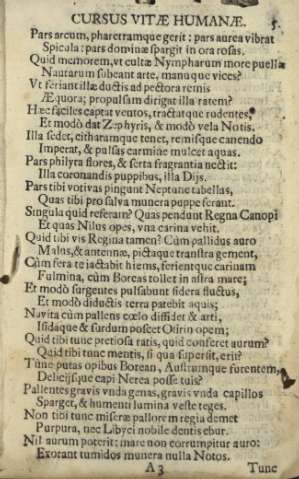 CURSUS VITÆ HUMANÆ. 5.
Pars arcum, pharetramque gerit: pars aurea vibrat
Spicula: pars dominæ spargit in ora rosas.
Quid memorem, vt cultæ Nympharum more puellæ
Nautarum subeant arte, manuque vices?
Vt feriant illæ ductis ad pectora remis
Æquora; propulsam dirigat illa ratem?
Hæc faciles captat ventos, tractatque rudentes,
Et modò dat Zephyris, & modò vela Notis.
Illa sedet, citharamque tenet, remisque canendo
Imperat, & pulsas carmine mulcet aquas.
Pars philyra flores, & serta fragrantia nectit:
Illa coronandis puppibus, illa Dijs.
Pars tibi votivas pingunt Neptune tabellas,
Quas tibi pro salva munera puppe ferant.
Singula quid referam? Quas pendunt Regna Canopi
Et quas Nilus opes, vna carina vehit.
Quid tibi vis Regina tamen? Cùm pallidus auro
Malus, & antennæ, pictaque transtra gement,
Cùm fera te iactabit hiems, ferientque carinam
Fulmina, cùm Boreas tollet in astra mare;
Et modò surgentes pulsabunt sidera fluctus,
Et modò diductis terra patebit aquis;
Navita cùm pallens cœlo diffidet & arti,
Isidaque & surdum poscet Osirin opem;
Quid tibi tunc pretiosa ratis, quid conferet aurum?
Quid tibi tunc mentis, si qua supersit, erit?
Tunc putas opibus Borean, Austrumque furentem,
Delicijsque capi Nerea posse tuis?
Pallentes gravis vnda genas, gravis vnda capillos
Sparget, & humenti lumina veste teges.
Non tibi tunc miseræ pallorem regia demet
Purpura, nec Libyci nobile dentis ebur.
Nil aurum poterit: mare non corrumpitur auro:
Exorant tumidos munera nulla Notos.
A 3 Tunc